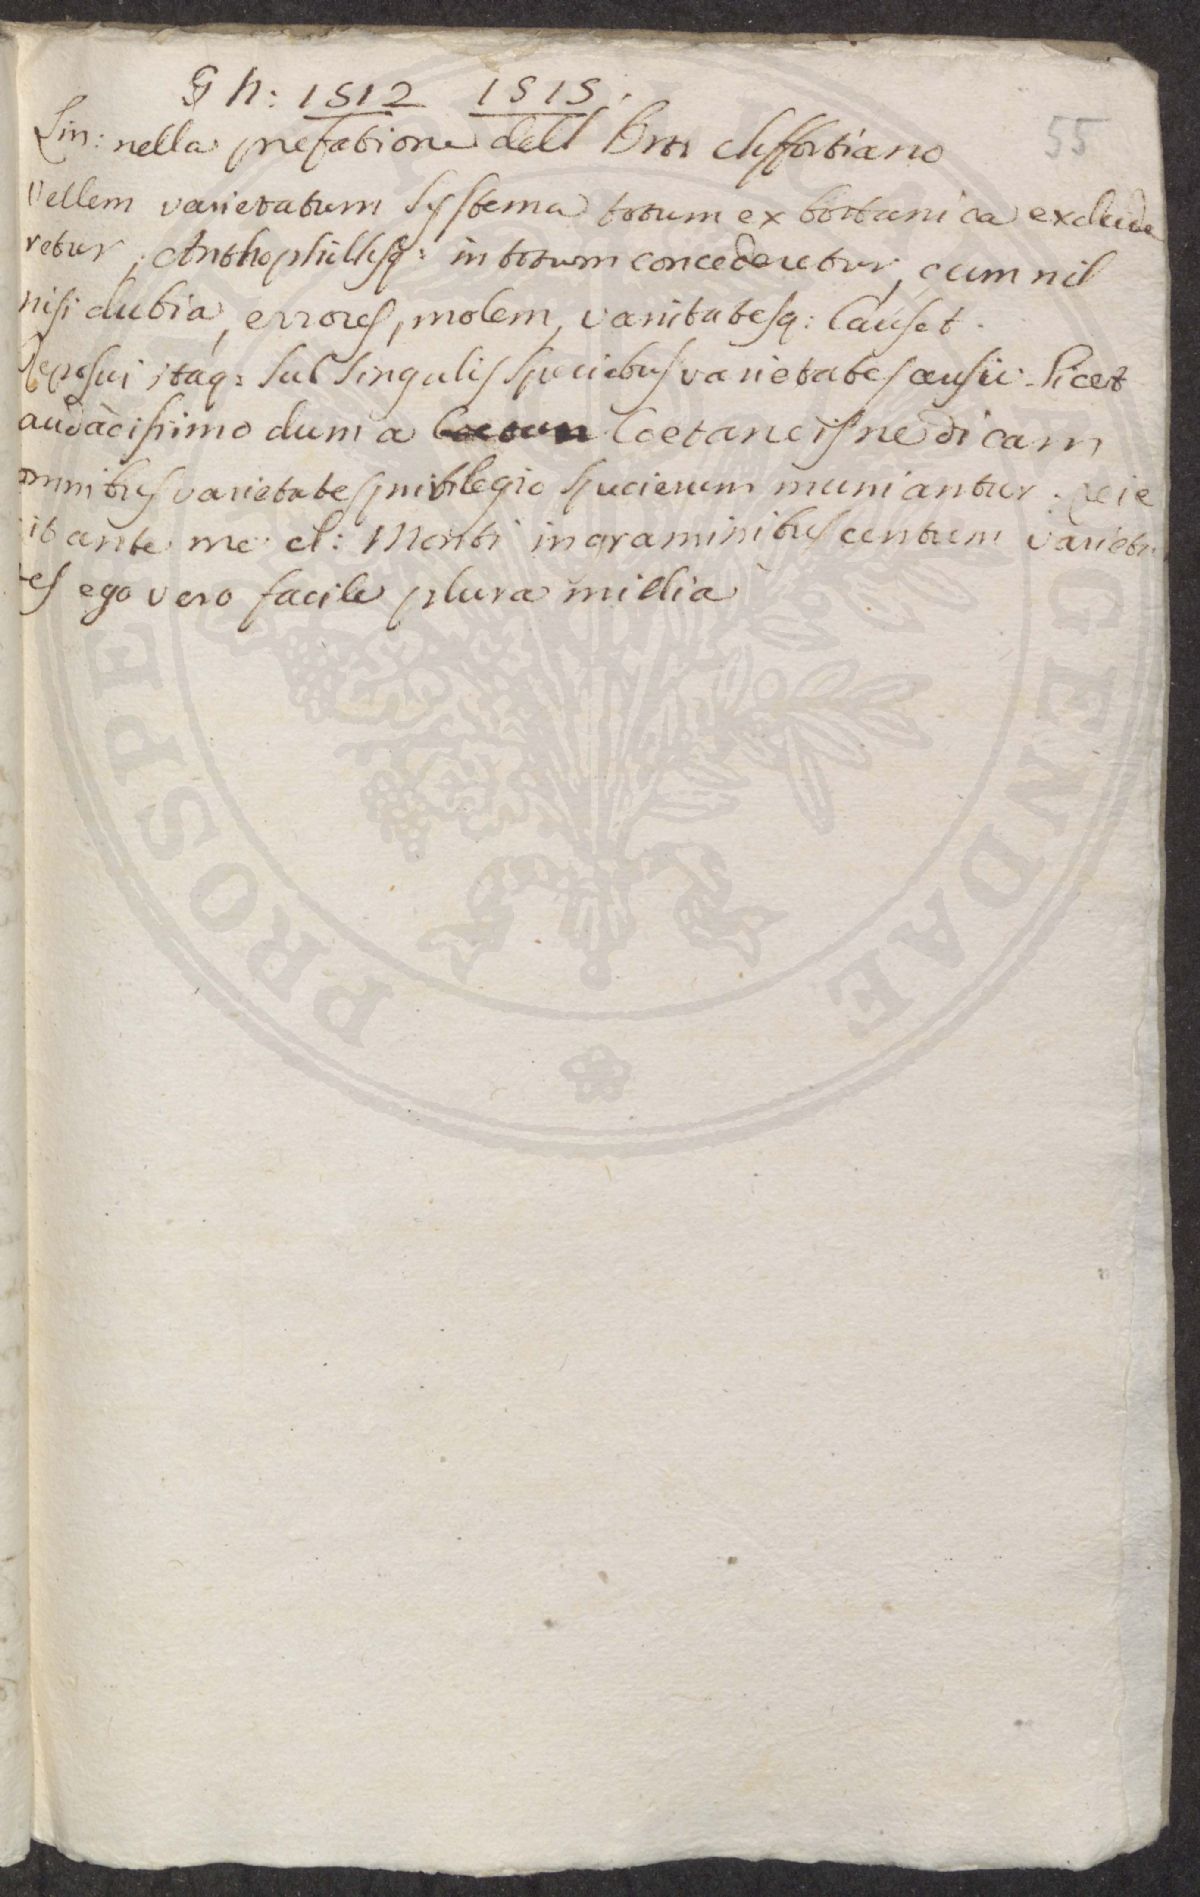 G h: 1512 1515.
55
Lin: nella prefatione dell Orto cliffortiano
Vellem varietatum Systema totum ex bottanica exclude
retur, Anthophillisq: in totum concederetur, cum nil
nisi dubia, errores, molem, vanitatesq: Causet.
Reposui itaq: sub singulis speciebus varietates ausu licet
audacissimo dum a Coetaneis ne dicam
omnibus varietates privilegio specierum muniantur. Reie
cit ante me cl: Monti in graminibus centum varieta
tes ego vero facile plura millia
PROSPE CENDAE